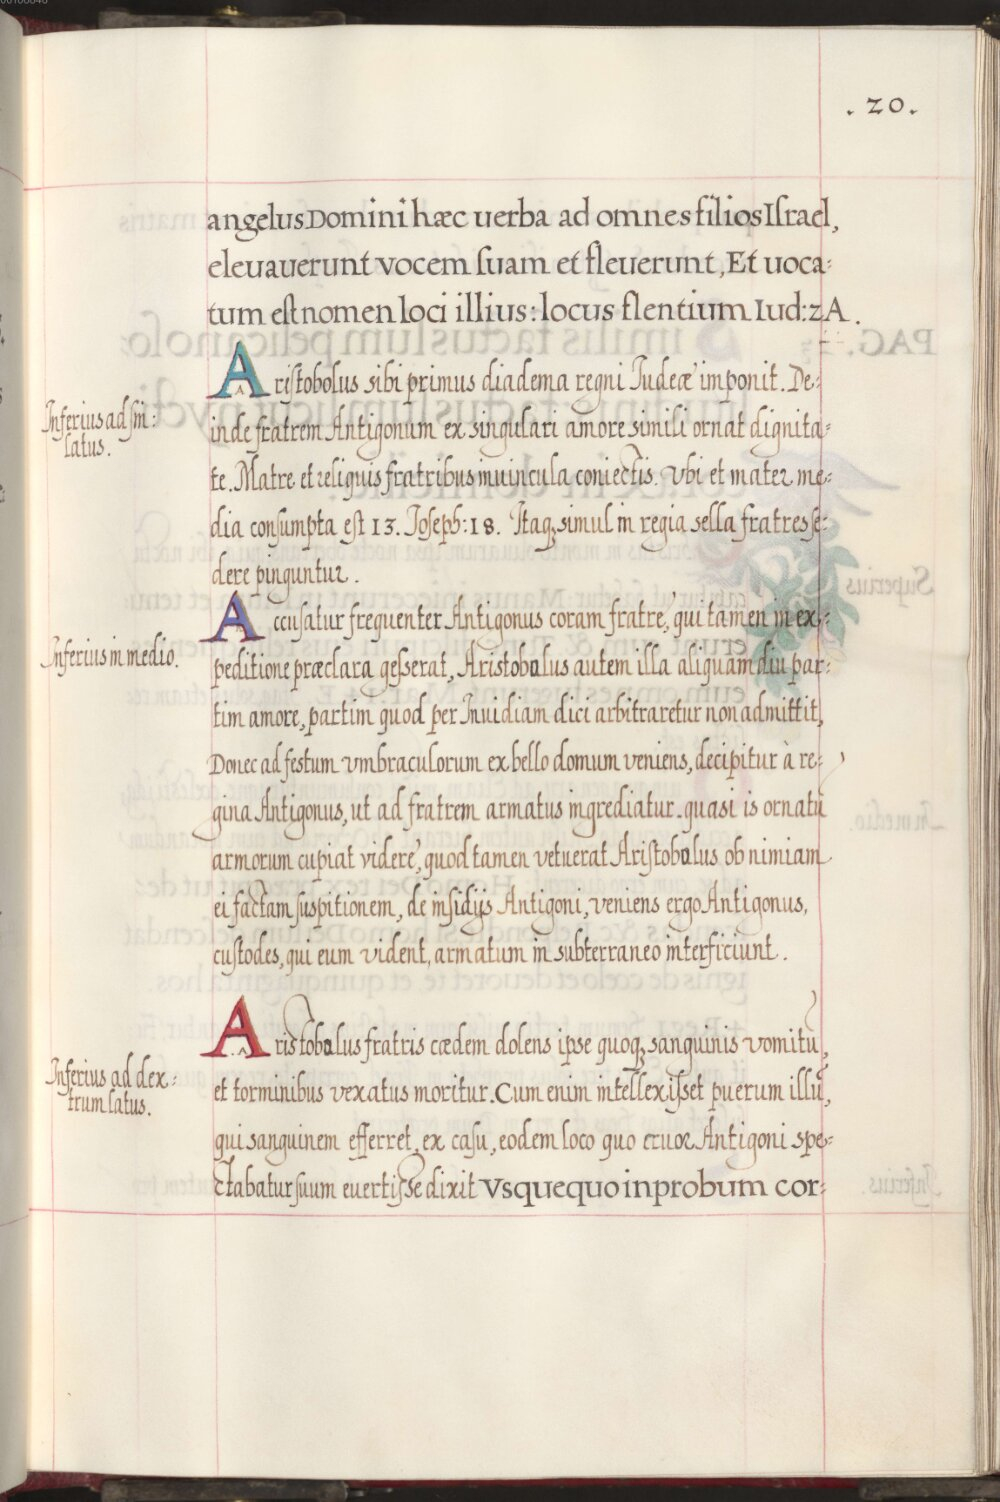 . 20 .
angelus Domini hæc uerba ad omnes filios Iſrael,
eleuauerunt vocem ſuam et fleuerunt, Et uoca:
tum eſt nomen loci illius: locus flentium Iud: 2 A .
Ariſtobolus sibi primus diadema regni Iudeæ imponit. De:
Inferius ad sin:
latus.
inde fratrem Antigonum ex singulari amore simili ornat dignita:
te. Matre et reliquis fratribus in uincula coniectis. Vbi et mater me:
dia conſumpta eſt 13. Ioseph: 18. Itaq; simul in regia sella fratres ſe:
dere pinguntur .
Accuſatur frequenter Antigonus coram fratre, qui tamen in ex:
Inferius in medio.
peditione præclara geſserat, Aristobolus autem illa aliquam diu par:
tim amore, partim quod per Inuidiam dici arbitraretur non admittit,
Donec ad feſtum vmbraculorum ex bello domum veniens, decipitur à re:
gina Antigonus, ut ad fratrem armatus ingrediatur. quasi is ornatū
armorum cupiat videre, quod tamen vetuerat Ariſtobolus ob nimiam
ei factam ſuspitionem, de inſidijs Antigoni, veniens ergo Antigonus,
cuſtodes, qui eum vident, armatum in subterraneo interficiunt .
Aristobolus fratris cædem dolens ipse quoq; sanguinis vomitū,
Inferius ad dex:
trum latus.
et torminibus vexatus moritur. Cum enim intellexiſset puerum illū,
qui sanguinem efferret, ex caſu, eodem loco quo cruor Antigoni spe:
ctabatur ſuum euertiſse dixit Vsquequo inprobum cor: